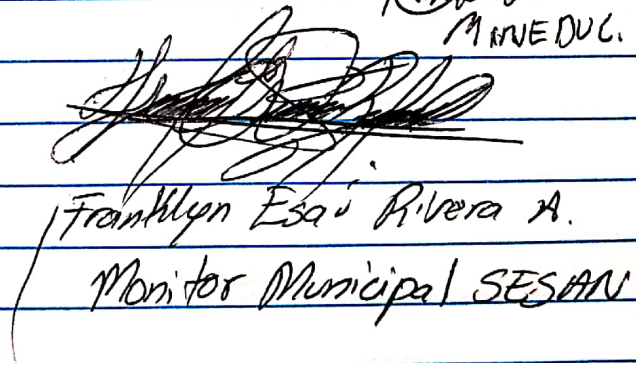 MINEDUC.
Franklyn Esaú Rivera A.
Monitor Municipal SESAN